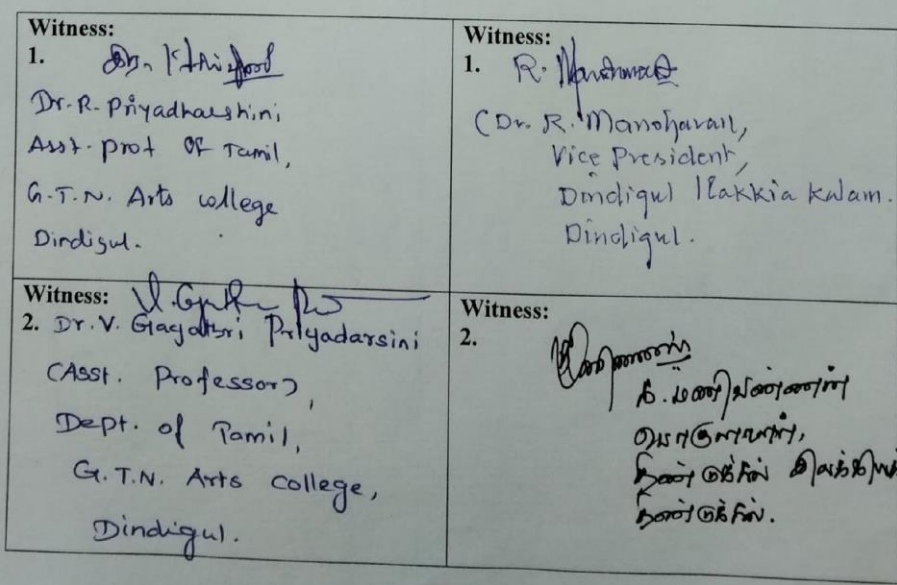 Witness:
1.
Dr. R. Priyadharshini
Asst. Prof of Tamil,
G.T.N. Arts college
Dindigul.
Witness:
1. R.
(Dr. R. Manoharan,
Vice President,
Dindigul Ilakkia Kalam.
Dindigul.
Witness:
2. Dr. V. Gayathri Priyadarsini
(Asst. Professor),
Dept. of Tamil,
G.T.N. Arts college,
Dindigul.
Witness:
2.
க. மணிவண்ணன்
பொருளாளர்,
திண்டுக்கல் இலக்கியக்
திண்டுக்கல்.